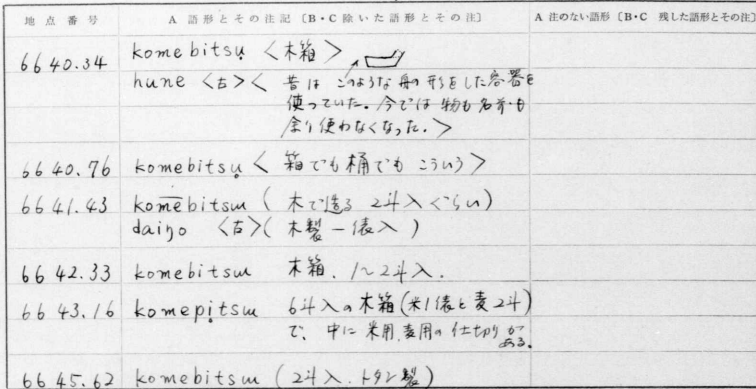 地点番号 A 語形とその注記〔B・C 除いた語形とその注〕 A 注のない語形〔B・C 残した語形とその注〕
6640.34 komebitsu̥ <木箱>
hune <古> < 昔は このような舟の形をした容器を
使っていた。今では物も名前も
余り使わなくなった。>
6640.76 komebitsu̥ < 箱でも桶でも こういう >
6641.43 komebitsɯ ( 木で造る 2斗入ぐらい)
daiŋo <古>( 木製 一俵入 )
6642.33 komebitsɯ 木箱. 1〜2斗入.
6643.16 komepi̥tsɯ 6斗入の木箱(米1俵と麦2斗)
で、中に米用、麦用の仕切りが
ある。
6645.62 komebitsɯ (2斗入.トタン製)